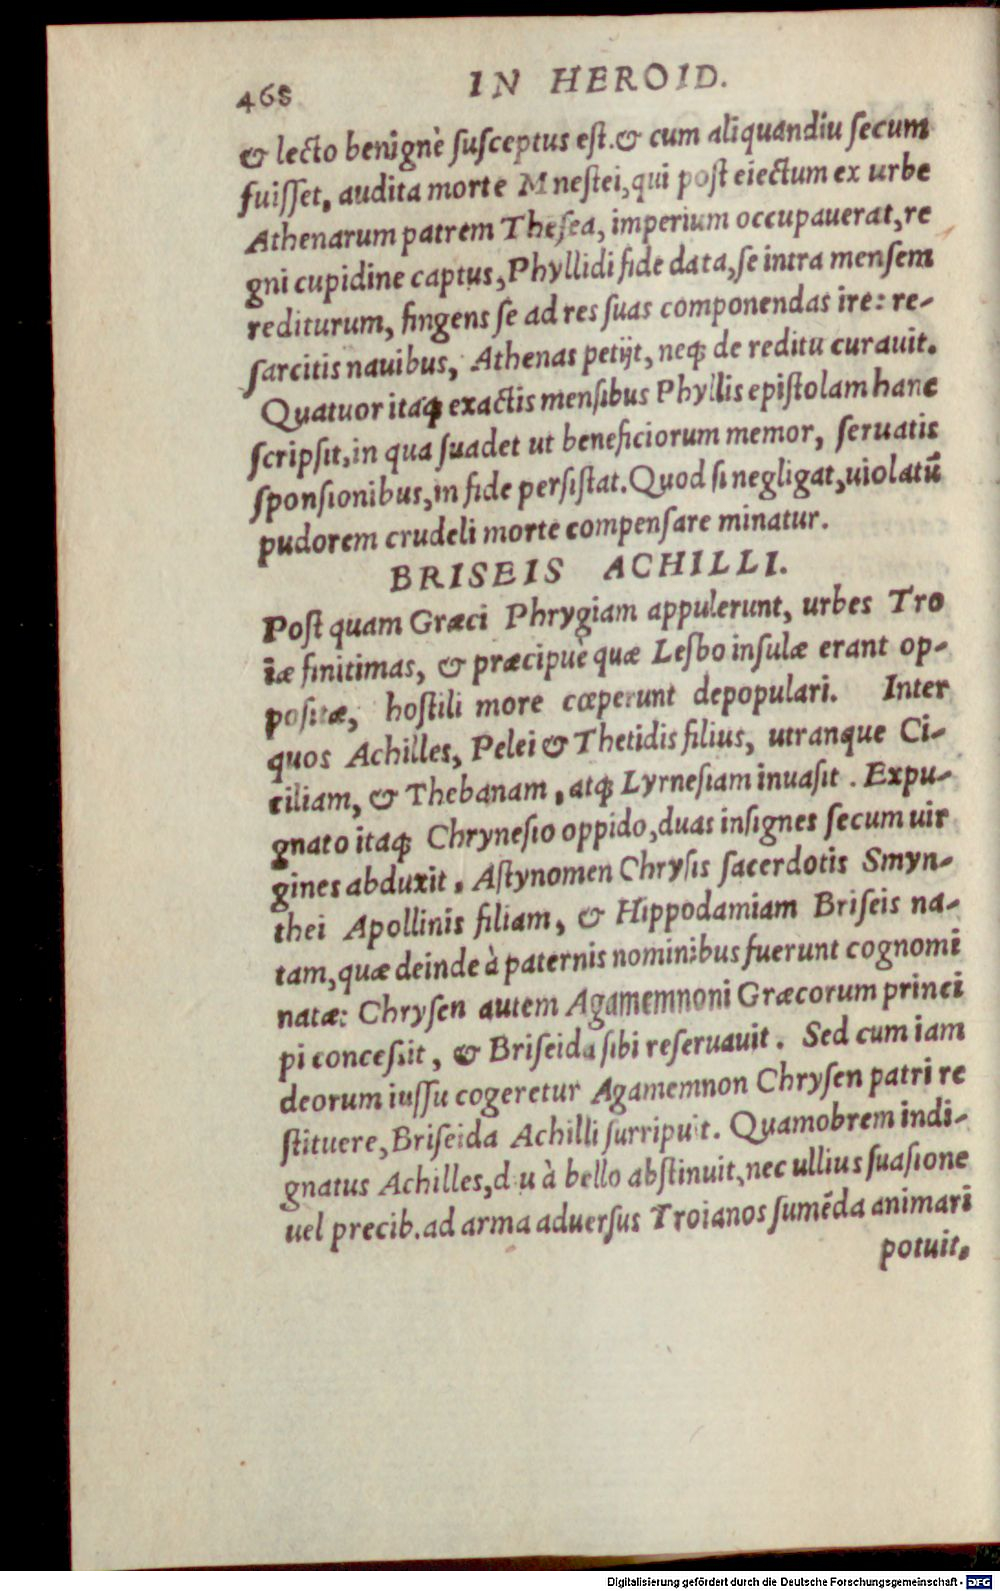 468 IN HEROID.
& lecto benignè ſuſceptus eſt. & cum aliquandiu ſecum
fuiſſet, audita morte Mneſtei, qui poſt eiectum ex urbe
Athenarum patrem Theſea, imperium occupauerat, re
gni cupidine captus, Phyllidi fide data, ſe intra menſem
rediturum, fingens ſe ad res ſuas componendas ire: re-
ſarcitis nauibus, Athenas petijt, neq; de reditu curauit.
Quatuor itaq; exactis menſibus Phyllis epiſtolam hanc
ſcripſit, in qua ſuadet ut beneficiorum memor, ſeruatis
ſponſionibus, in fide perſiſtat. Quod ſi negligat, uiolatū
pudorem crudeli morte compenſare minatur.
BRISEIS ACHILLI.
Poſt quam Græci Phrygiam appulerunt, urbes Tro
iæ finitimas, & præcipuè quæ Leſbo inſulæ erant op-
poſitæ, hoſtili more cœperunt depopulari. Inter
quos Achilles, Pelei & Thetidis filius, utranque Ci-
ciliam, & Thebanam, atq; Lyrneſiam inuaſit. Expu-
gnato itaq; Chryneſio oppido, duas inſignes ſecum uir
gines abduxit, Aſtynomen Chryſis ſacerdotis Smyn-
thei Apollinis filiam, & Hippodamiam Briſeis na-
tam, quæ deinde à paternis nominibus fuerunt cognomi
natæ: Chryſen autem Agamemnoni Græcorum princi
pi conceſsit, & Briſeida ſibi reſeruauit. Sed cum iam
deorum iuſſu cogeretur Agamemnon Chryſen patri re
ſtituere, Briſeida Achilli ſurripuit. Quamobrem indi-
gnatus Achilles, diu à bello abſtinuit, nec ullius ſuaſione
uel precib. ad arma aduerſus Troianos ſumēda animari
potuit,
Digitalisierung gefördert durch die Deutsche Forschungsgemeinschaft - DFG